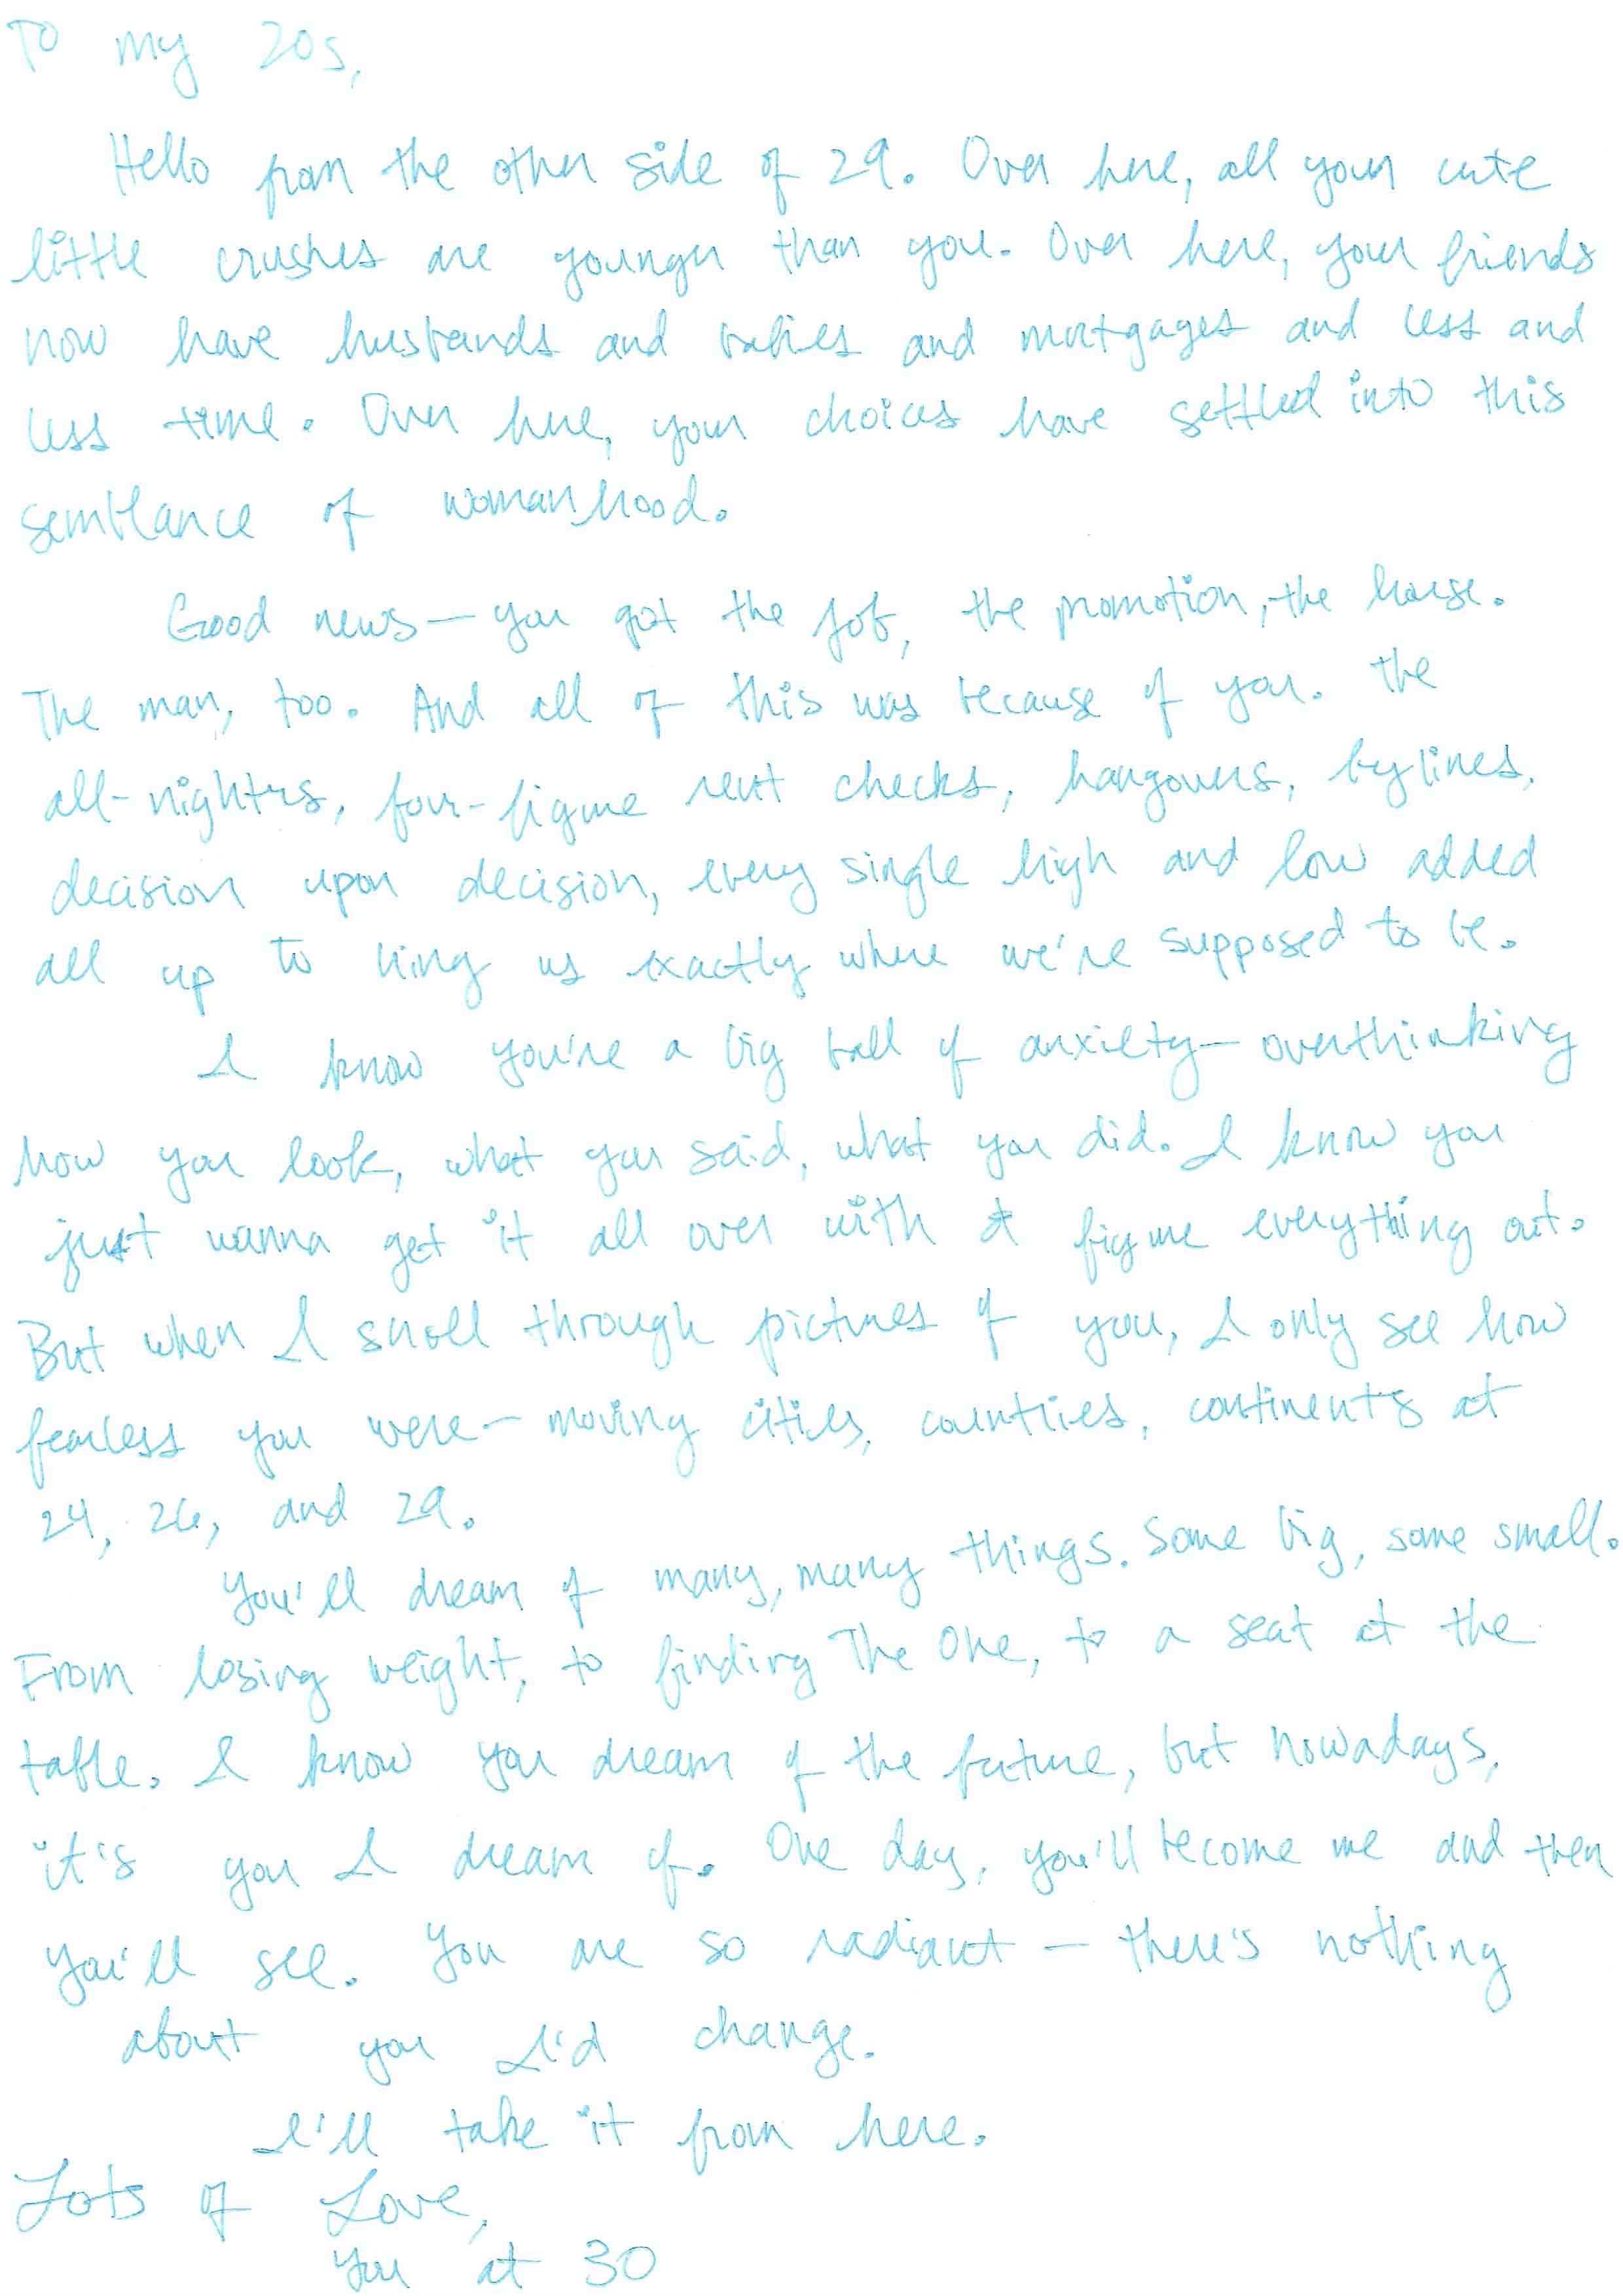 To my 20s,
Hello from the other side of 29. Over here, all your cute
little crushes are younger than you. Over here, your friends
now have husbands and babies and mortgages and less and
less time. Over here, your choices have settled into this
semblance of womanhood.
Good news—you got the job, the promotion, the house.
The man, too. And all of this was because of you. The
all-nighters, four-figure rent checks, hangovers, bylines,
decision upon decision, every single high and low added
all up to bring us exactly where we're supposed to be.
I know you're a big ball of anxiety—overthinking
how you look, what you said, what you did. I know you
just wanna get it all over with & figure everything out.
But when I scroll through pictures of you, I only see how
fearless you were—moving cities, countries, continents at
24, 26, and 29.
You'll dream of many, many things. Some big, some small.
From losing weight, to finding The One, to a seat at the
table. I know you dream of the future, but nowadays,
it's you I dream of. One day, you'll become me and then
you'll see. You are so radiant—there's nothing
about you I'd change.
I'll take it from here.
Lots of Love,
You at 30